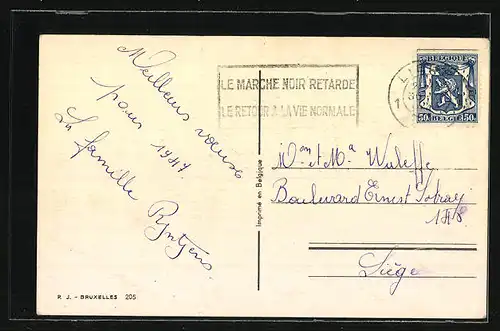 Meilleurs vœux
pour 1947
La famille
Ryntjens
LE MARCHE NOIR RETARDE
LE RETOUR A LA VIE NORMALE
BELGIQUE
50c BELGIË 50c
Imprimé en Belgique
Mon et Ma Waleffe
Boulevard Ernest Solvay
Liège
P. J. - BRUXELLES 205